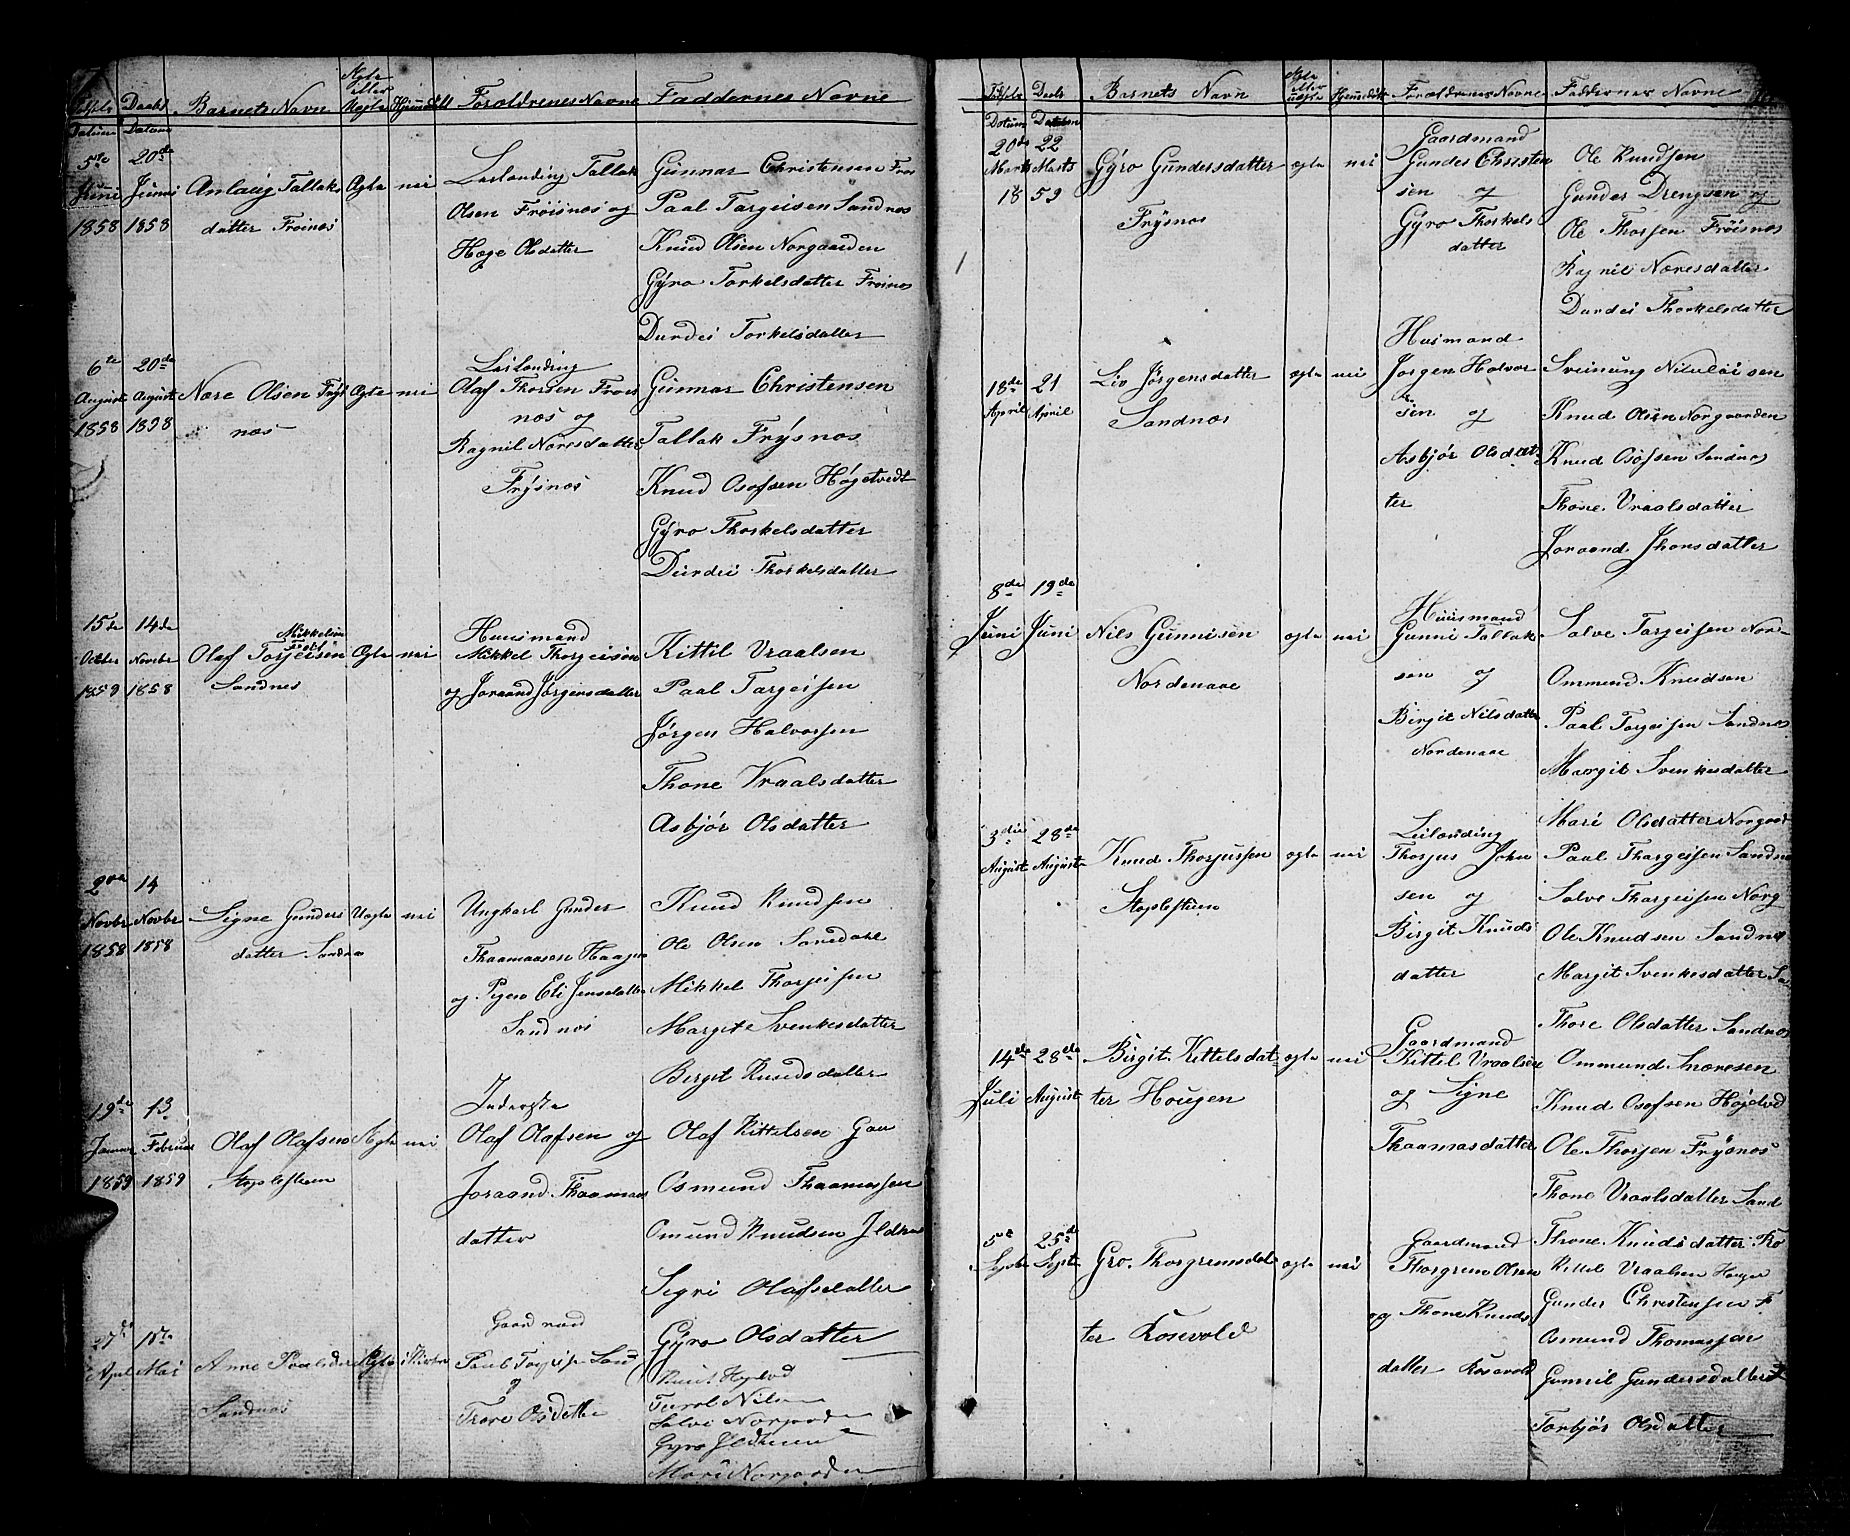 Barnets Navn Ægte eller Uægte Hjemdøbt Forældrenes Navne Faddernes Navne
Datum Datum
5te Juni 1858
20de Juni 1858
Anlaug Tallaks
datter Froisnæs
Ægte
nei
Leilænding Tallak
Olsen Frøisnæs og
Hæge Olsdatter
Gunnar Christensen Frøs
Paal Targeisen Sandnæs
Knud Olsen Norgaarden
Gyro Torkelsdatter Froinæs
Durdei Torkelsdatter
6te August 1858
20de August 1858
Nære Olsen Frys
næs
Ægte
nei
Leilænding
Olaf Thorsen Frøis
næs og
Ragnil Næresdatter
Frysnæs
Gunnar Christensen
Tallak Frysnæs
Knud Osofsen Høgetvedt
Gyro Thorkelsdatter
Durdei Thorkelsdatter
15de Octber 1859
14de Novbr 1858
Mikkelsen
Olaf Torjeisen
Sandnes
Ægte
nei
Huusmand
Mikkel Thorgeisen
og Joraand Jørgensdatter
Kittil Vraalsen
Paal Targeisen
Jørgen Halvorsen
Thone Vraalsdatter
Asbjør Olsdatter
2den Novbr 1858
14 Novbr 1858
Signe Gunders
datter Sandnæ
Uægte
nei
Ungkarl Gunder
Thaamaasen Haagen
og Pigen Eli Jensdatter
Sandnæs
Knud Knudsen
Ole Olsen Sandale
Mikkel Thorjeisen
Margit Svenkesdatter
Bergit Knudsdatter
19de Januar 1859
13 Februar 1859
Olaf Olafsen
Stoplesteen
Ægte
nei
Inderste
Olaf Olafsen og
Joraand Thaamaas
datter
Olaf Kittelsen
Osmund Thaamassen
Omund Knudsen
Sigri Olafsdatter
Gyro Olsdatter
27de April
15te Mai
Anne Paalsdatter
Sandnæs
Ægte
i Kirken
Gaardmand
Paul Torjeisen Sand
og
Tone Olsdatter
Knut
Salve Norgaarden
Gyro
Mari Norgaarden
Barnets Navn Ægte eller uægte Hjemmedøbt Forældrenes Navne Faddernes Navne
Datum Datum
20de Marts
22 Marts
1859
Gyro Gundersdatter
Frysnæs
ægte
nei
Gaardmand
Gunder Christen
sen og
Gyro Thorkels
datter
Ole Knudsen
Gunder Drengsen og
Ole Thorsen Frøisnæs
Ragnil Næresdatter
Durdei Thorkelsdatter
18de April
21 April
Liv Jørgensdatter
Sandnæs
ægte
nei
Husmand
Jørgen Halvor
sen og
Asbjør Olsdat
ter
Sveinung Nikulaisen
Knud Olsen Norgaarden
Knud Osofsen Sandnæs
Thone Vraalsdatter
Joraand Jhonsdatter
8de Juni
19de Juni
Nils Gunnisen
Nordenaae
ægte
nei
Huusmand
Gunni Tallak
sen og
Birgit Nilsdatter
Nordenaae
Salve Targeisen Nor
Ommund Knudsen
Paal Torgeisen Sandnæs
Margit Svenkesdatter
Mari Olsdatter Norgaard
3die August
28de August
Knud Thorjussen
Stoplesteen
ægte
nei
Leilænding
Thorjus John
sen og
Birgit Knuds
datter
Paal Thargeisen Sandnæ
Salve Thargeisen Norg
Ole Knudsen Sandnæs
Margit Svenkesdatter Sa
Thore Olsdatter Sandnæs
14de Juli
28de August
Birgit Kittelsdat
ter Hougen
ægte
nei
Gaardmand
Kittel Vraalsen
og Signe
Thaamasdatter
Ommund Snaresen
Knud Osofsen Højetved
Ole Thorsen Frysnæs
Thone Vraalsdatter Sand
Thone Knudsdatter Ro
5te Septbr
25de Septbr
Gro Thorgrimsdat
ter Rosevold
ægte
nei
Gaardmand
Thorgrim Olsen
og Thone Knuds
datter Rosevold
Kittel Vraalsen Hougen
Gunder Christensen F
Osmund Thomassen
Gunvil Gundersdatter
Torbjør Olsdatter